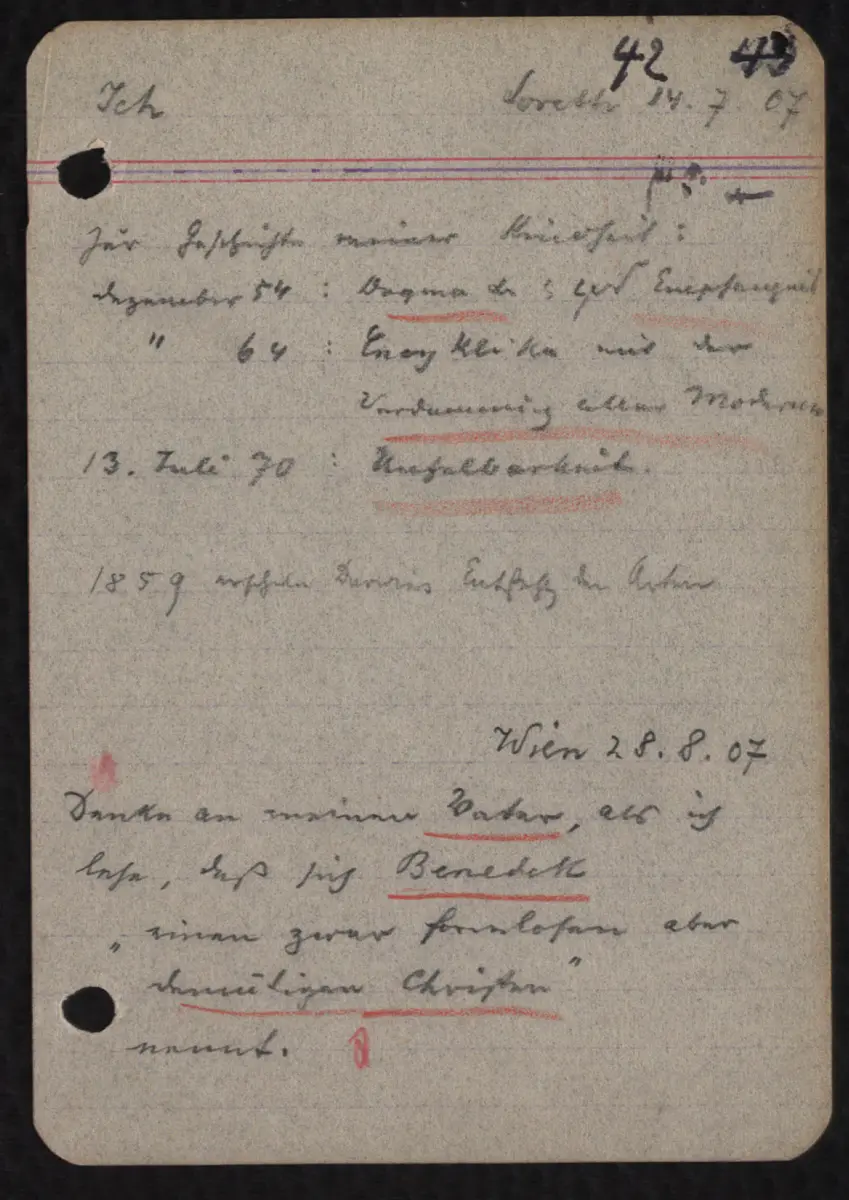 42 43
Ich Loreth 14. 7. 07
Zur Geschichte meiner Kindheit :
Dezember 54 : Dogma der Empfängnis
" 64 : Encyklika mit der
Verdammung alles Modernen
13. Juli 70 : Unfelbarkeit.
1859 erschien Darwins Entstehg der Arten
Wien 28. 8. 07
Denke an meinen Vater, als ich
lese, daß sich Benedek
„ einen zwar formlosen aber
demütigen Christen "
nennt.